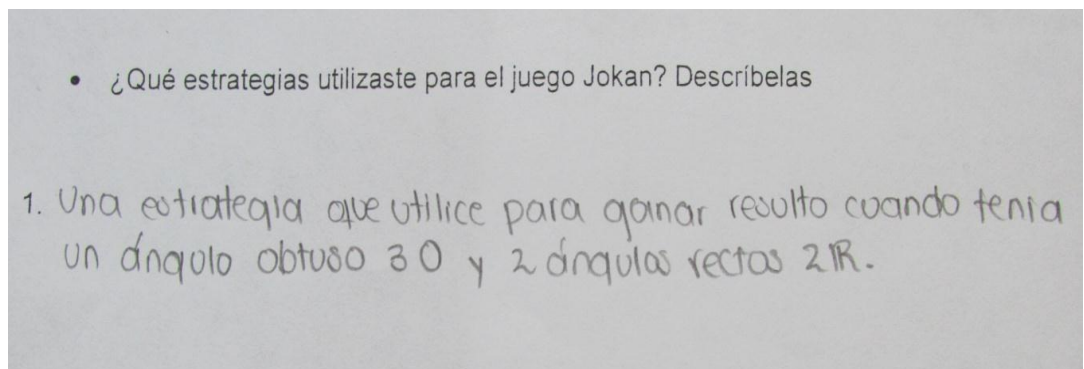 • ¿Qué estrategias utilizaste para el juego Jokan? Descríbelas
1. Una estrategia que utilice para ganar resulto cuando tenia
un ángulo obtuso 3 O y 2 ángulos rectos 2 R.